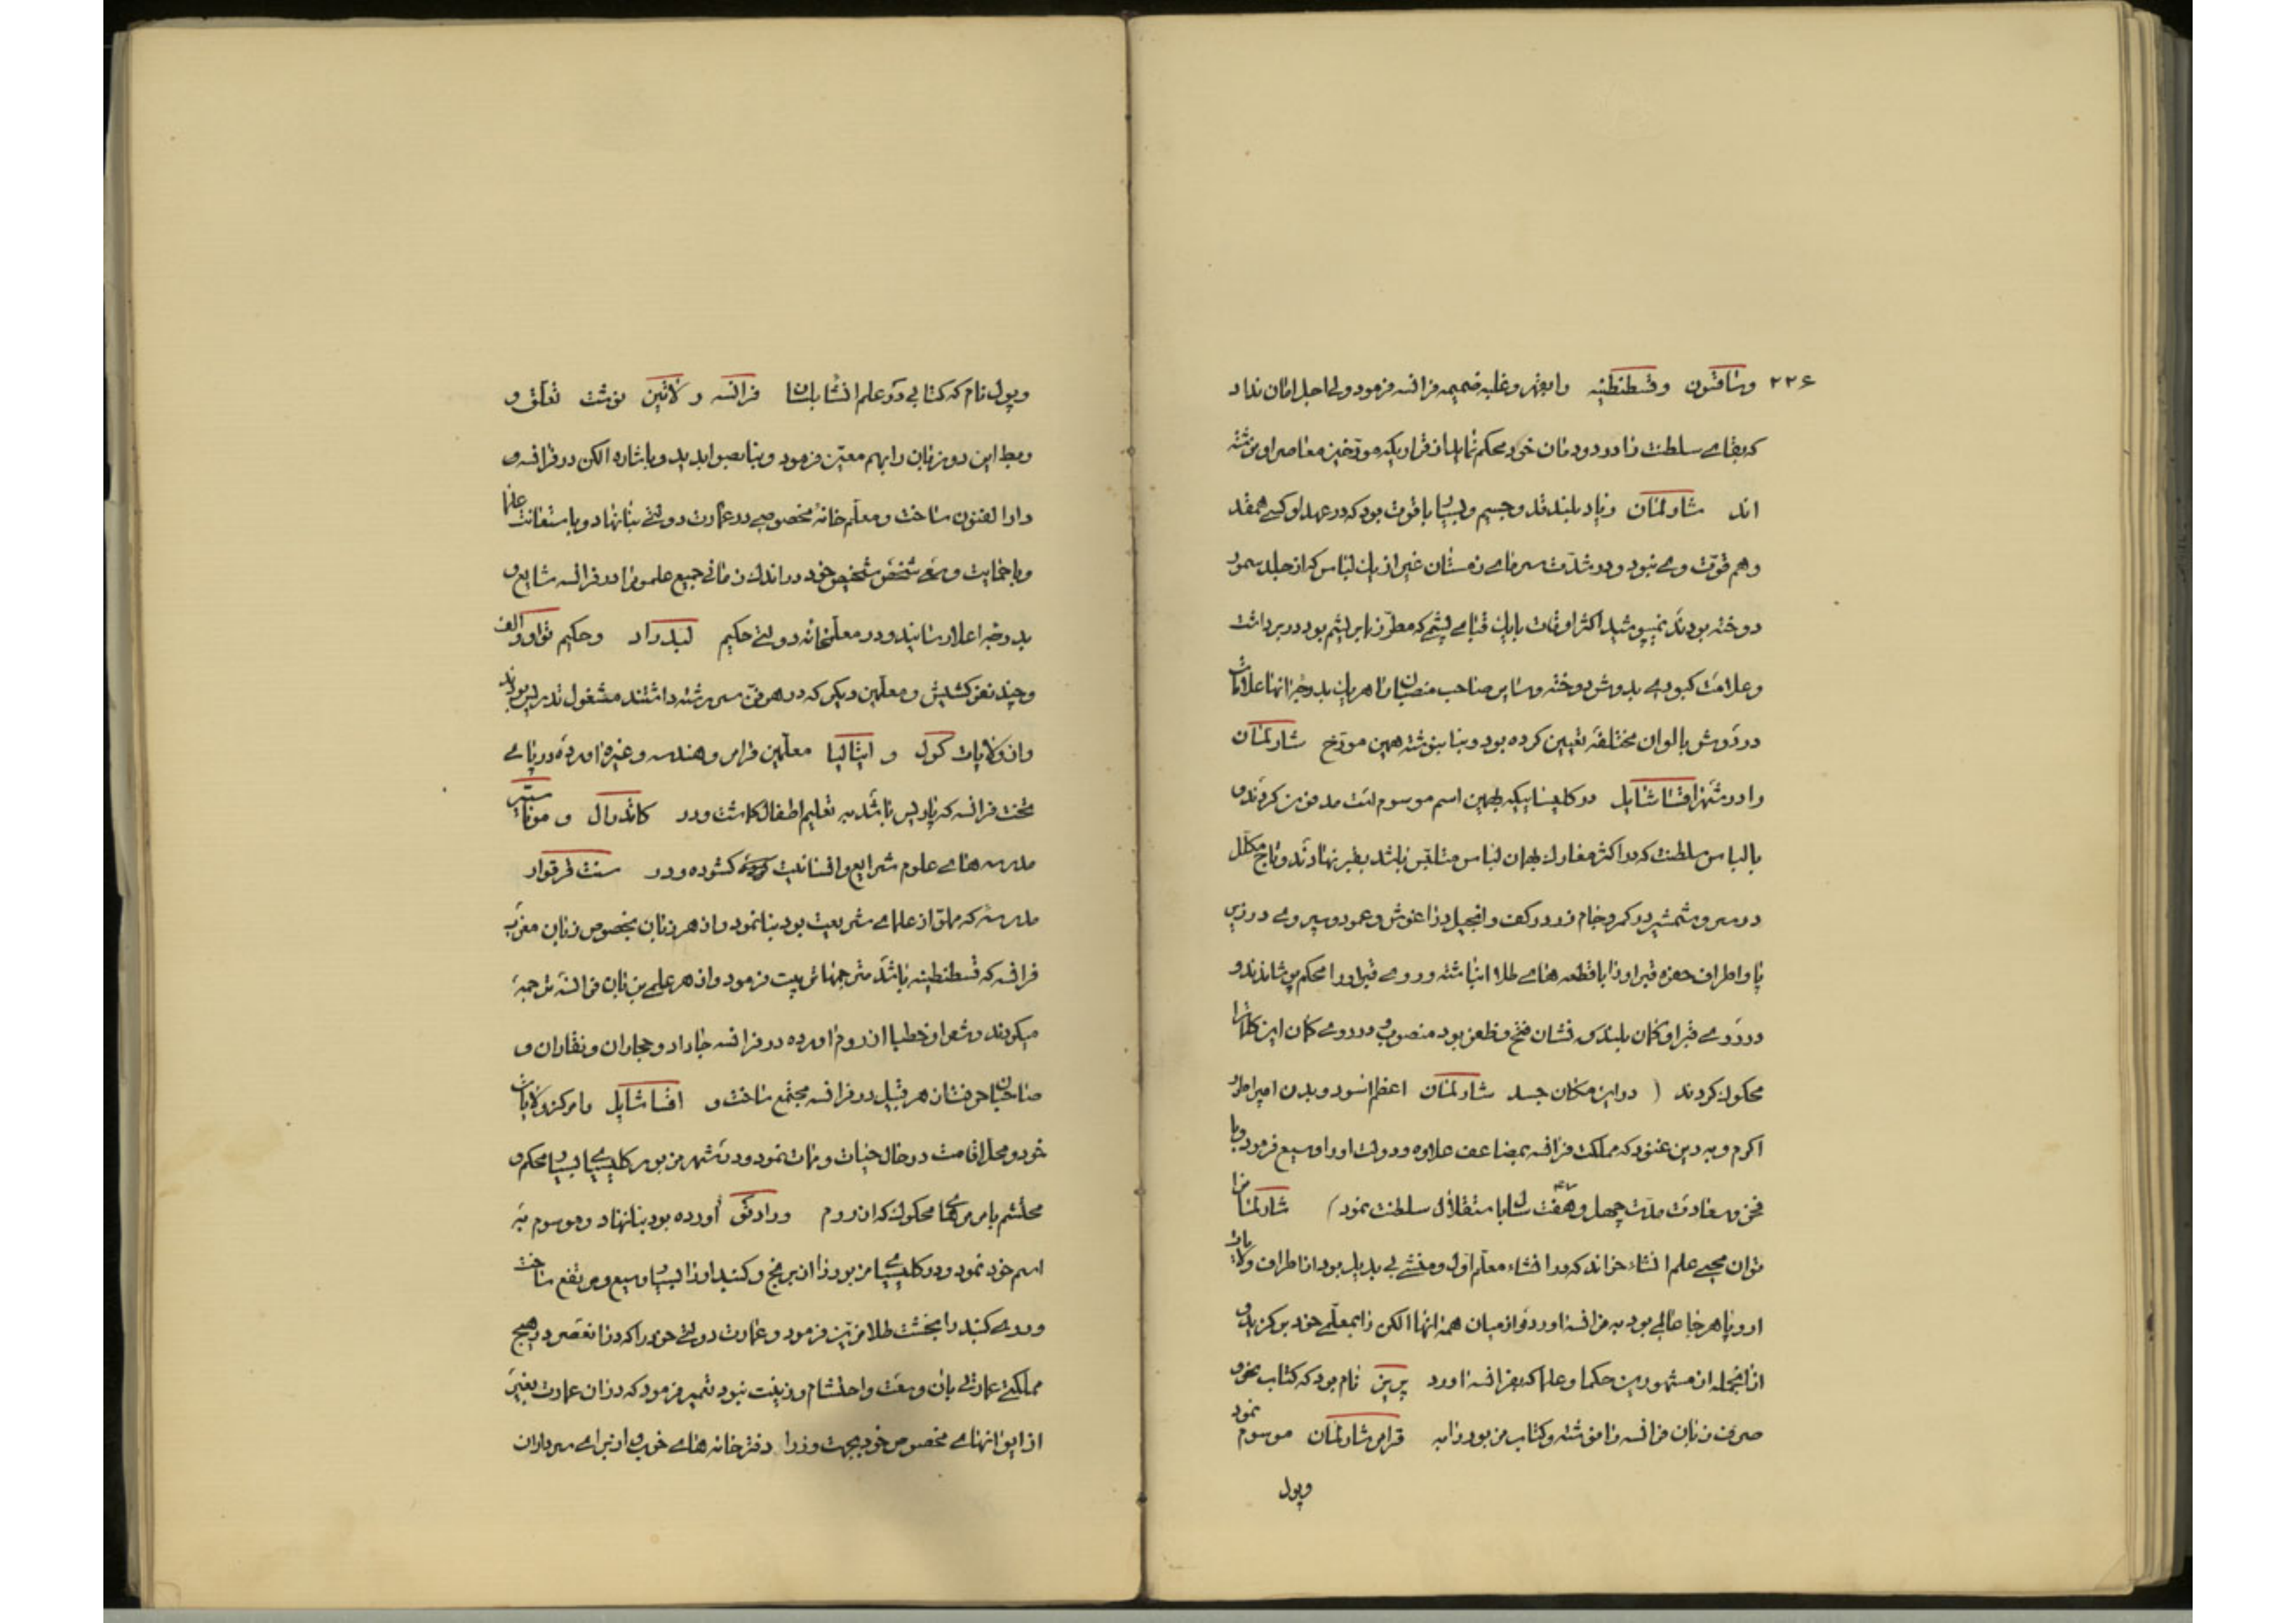 ۲۲۶ وساقسون وقسطنطنیه را بقهر و غلبه ضمیمه فرانسه فرمود ولی اجل امان نداد
که بقای سلطنت را در دودمان خود محکم نماید از قراریکه مورخین معاصر او نوشته
اند شارلمان زیاد بلند قد و جسیم و بسیار با قوت بود که در عهد او کسی همقد
و هم قوت وی نبود و در شدت سرمای زمستان غیر از یک لباس که از جلد سمور
دوخته بودند نمیپوشید اکثر اوقات با یک قبای پشمی که مطرز با بریشم بود در بر داشت
و علامت کبودی بدوش دوخته و سایر صاحب منصبان را هر یک بدرجه انها علامات
در دوش بالوان مختلفه تعیین کرده بود و بنا بنوشته همین مورخ شارلمان
را در شهر اقساشاپل در کلیسائیکه بهمین اسم موسوم است مدفون کردند و
با لباس سلطنت که در اکثر معارک بهمان لباس متلبس باشد بقبر نهادند و تاج مکلل
در سر و شمشیر در کمر و جام زر در کف و انجیل در اغوش و عمود و سپر وی در زیر
پا و اطراف حفره قبر او را با قطعه های طلا انباشته و روی قبر او را محکم پوشاندند و
در روی قبر او کمان بلندی نشان فتح و ظفر بود منصوب و در روی کمان این کلمات را
محکوک کردند ( در این مکان جسد شارلمان اعظم اسود و بدن امپراطور
اکرم و بهدین غنود که مملکت فرانسه بمضاعف علاوه و دولت او را وسیع فرمود و با
فخر و سعادت مدت چهل و هفت ۴۷ سال با استقلال سلطنت نمود ) شارلمان را
توان محیی علم انشاء خواند که در انشاء معلم اول و منشی بی بدیل بود از اطراف ولایات
اروپا هر جا عالمی بود به فرانسه اورد و از میان همه انها الکن را بمعلمی خود برگزید و
از انجمله از مشهورین حکما و علما که بفرانسه اورد پریز نام بود که کتاب نحو و
صرف زبان فرانسه را نوشته و کتاب مزبور را به قرامر شارلمان موسوم نمود
وپول
وپول نام که کتابی در علم انشا بلسان فرانسه و لاتین نوشت تعلق و
ربط این دو زبان را بهم معین فرمود و بنا بصوابدید و باشاره الکن در فرانسه
دارالفنون ساخت و معلم خانه مخصوصی در عمارت دولتی بنا نهاد و باستعانت علما
و با حمایت و سعی شخص شخیص خود در اندک زمانی جمیع علوم را در فرانسه شایع و
بدرجه اعلا رسانید و در معلمخانه دولتی حکیم لیدراد و حکیم تواوولف
و چند نفر کشیش و معلمین دیگر که در هر فن سر رشته داشتند مشغول تدریس بودند
و از ولایات کول و ایتالیا معلمین قرامر و هندسه و غیره اورده در پای
تخت فرانسه که پاریس باشد به تعلیم اطفال کاشت و در کاتدرال و موناستیر
مدرسه های علوم شرایع و افسانیت کشوده و در سنت فرقوار
مدرسه که مملو از علمای شریعت بود بنا نمود و از هر زبان بخصوص زبان
فرانسه که قسطنطنیه باشد مترجمها تربیت فرمود و از هر علمی بزبان فرانسه ترجمه
میکردند و شعرا و خطبا از روم اورده در فرانسه جا داد و حجاران و نقاران و
صاحبان حرفتشان هر قبیل در فرانسه مجتمع ساخت و اقساشاپل را مرکز ولایات
خود و محل اقامت در حال حیات و ممات نمود و در شهر مزبور کلیسیای بسیار محکم و
محتشم با مرمرهای محکوک که از روم و رادنق آورده بود بنا نهاد و موسوم به
اسم خود نمود و در کلیسیای مزبور را از برنج و کنبد او را بسیار وسیع و مرتفع ساخت
و روی کنبد را بخشت طلا مزین فرمود و عمارت دولتی خود را که در انعصر در هیچ
مملکتی عمارتی بان وسعت و احتشام و زینت نبود تعمیر فرمود که در ان عمارت بغیر
از ایوانهای مخصوص خود بجهت وزرا دفترخانه های خوب و از برای سرداران